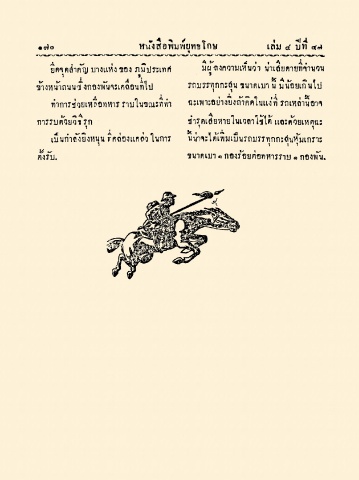 ๑๗๐ หนังสือพิมพ์ยุทธโกษ เล่ม ๔ ปีที่ ๔๗
ยึดจุดสำคัญ บางแห่ง ของ ภูมิประเทศ
ข้างหน้าถนนซึ่งกองพันจะเคลื่อนที่ไป
ทำการช่วยเหลือทหาร ราบในขณะที่ทำ
การรบด้วยวิธีรุก
เป็นกำลังยิงหนุน ที่คล่องแคล่ว ในการ
ตั้งรับ.
มีผู้ลงความเห็นว่า น่าเสียดายที่จำนวน
รถบรรทุกกะสุน ขนาดเบา นี้ มีน้อยเกินไป
ฉะเพาะอย่างยิ่งถ้าคิดในแง่ที่ รถเหล่านี้อาจ
ชำรุดเสียหายในเวลาใช้ได้ และด้วยเหตุฉะ
นี้น่าจะได้เพิ่มเป็นรถบรรทุกกะสุนหุ้มเกราะ
ขนาดเบา ๑ กองร้อยต่อทหารราบ ๑ กองพัน.